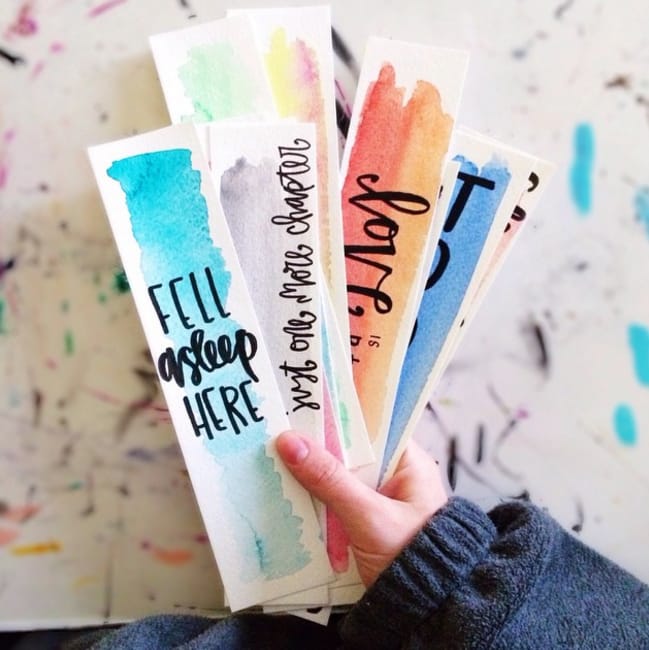 FELL
asleep
HERE
just one more chapter
love